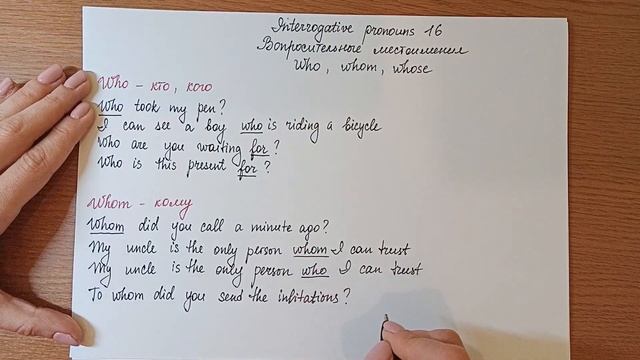 Interrogative pronouns 16
Вопросительные местоимения
Who, whom, whose
Who – кто, кого
Who took my pen?
I can see a boy who is riding a bicycle
Who are you waiting for?
Who is this present for?
Whom – кому
Whom did you call a minute ago?
My uncle is the only person whom I can trust
My uncle is the only person who I can trust
To whom did you send the inbitations?